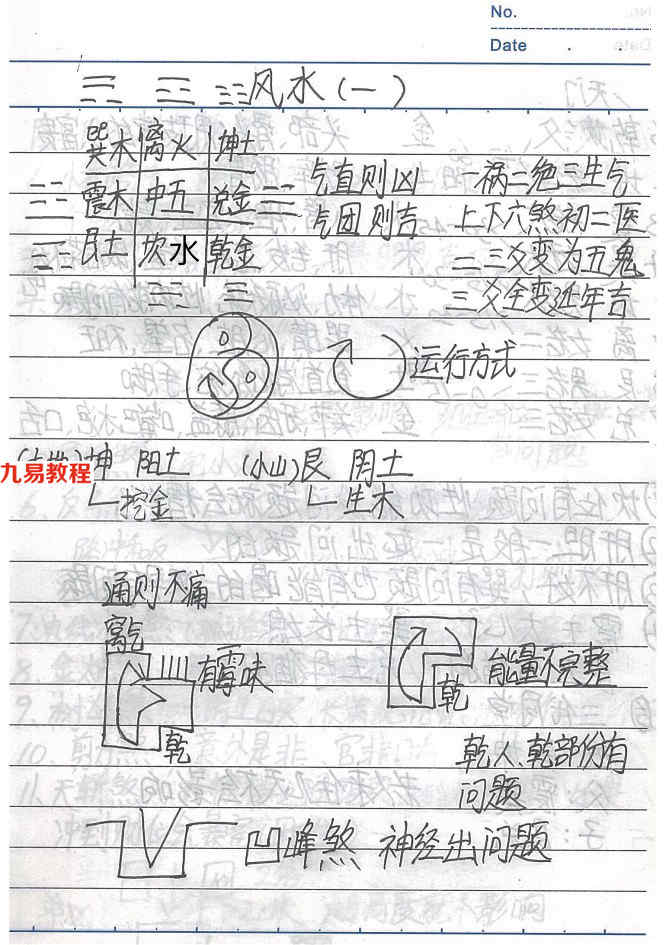 No.
Date
风水(一)
巽木 离火 坤土
震木 中五 兑金
艮土 坎水 乾金
气直则凶
气团则吉
一祸二绝三生气
上下六煞初二医
二三爻变为五鬼
三爻全变延年吉
运行方式
坤 阳土 (小山)艮 阴土
九易教程
挖金 生木
通则不痛
有霉味
乾
能量不完整
乾
乾人、乾部份有
问题
凹峰煞 神经出问题